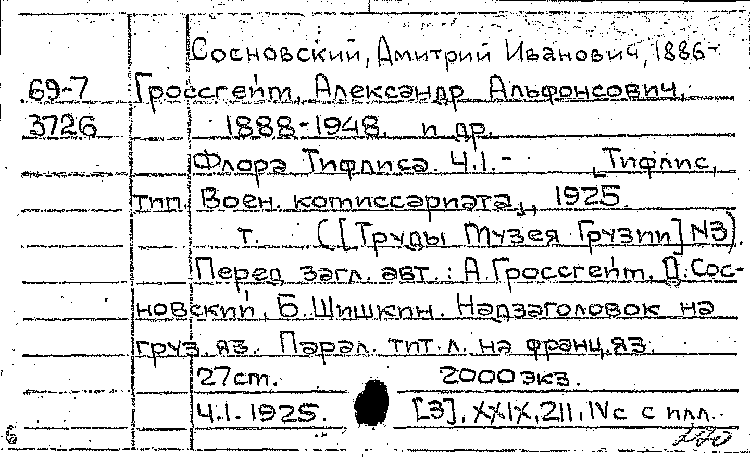 Сосновский, Дмитрий Иванович, 1886-
69-7 Гроссгейм, Александр Альфонсович,
3726 1888-1948. и др.
Флора Тифлиса. Ч.1.- [Тифлис,
тип. Воен. комиссариата], 1925.
т. ([Труды Музея Грузии] №3).
Перед загл. авт.: А.Гроссгейм, Д.Сос-
новский, Б.Шишкин. Надзаголовок на
груз. яз. Парал. тит.л. на франц.яз.
27см. 2000экз.
Ч.1. 1925. [3], XXIX, 211, IV с с илл.